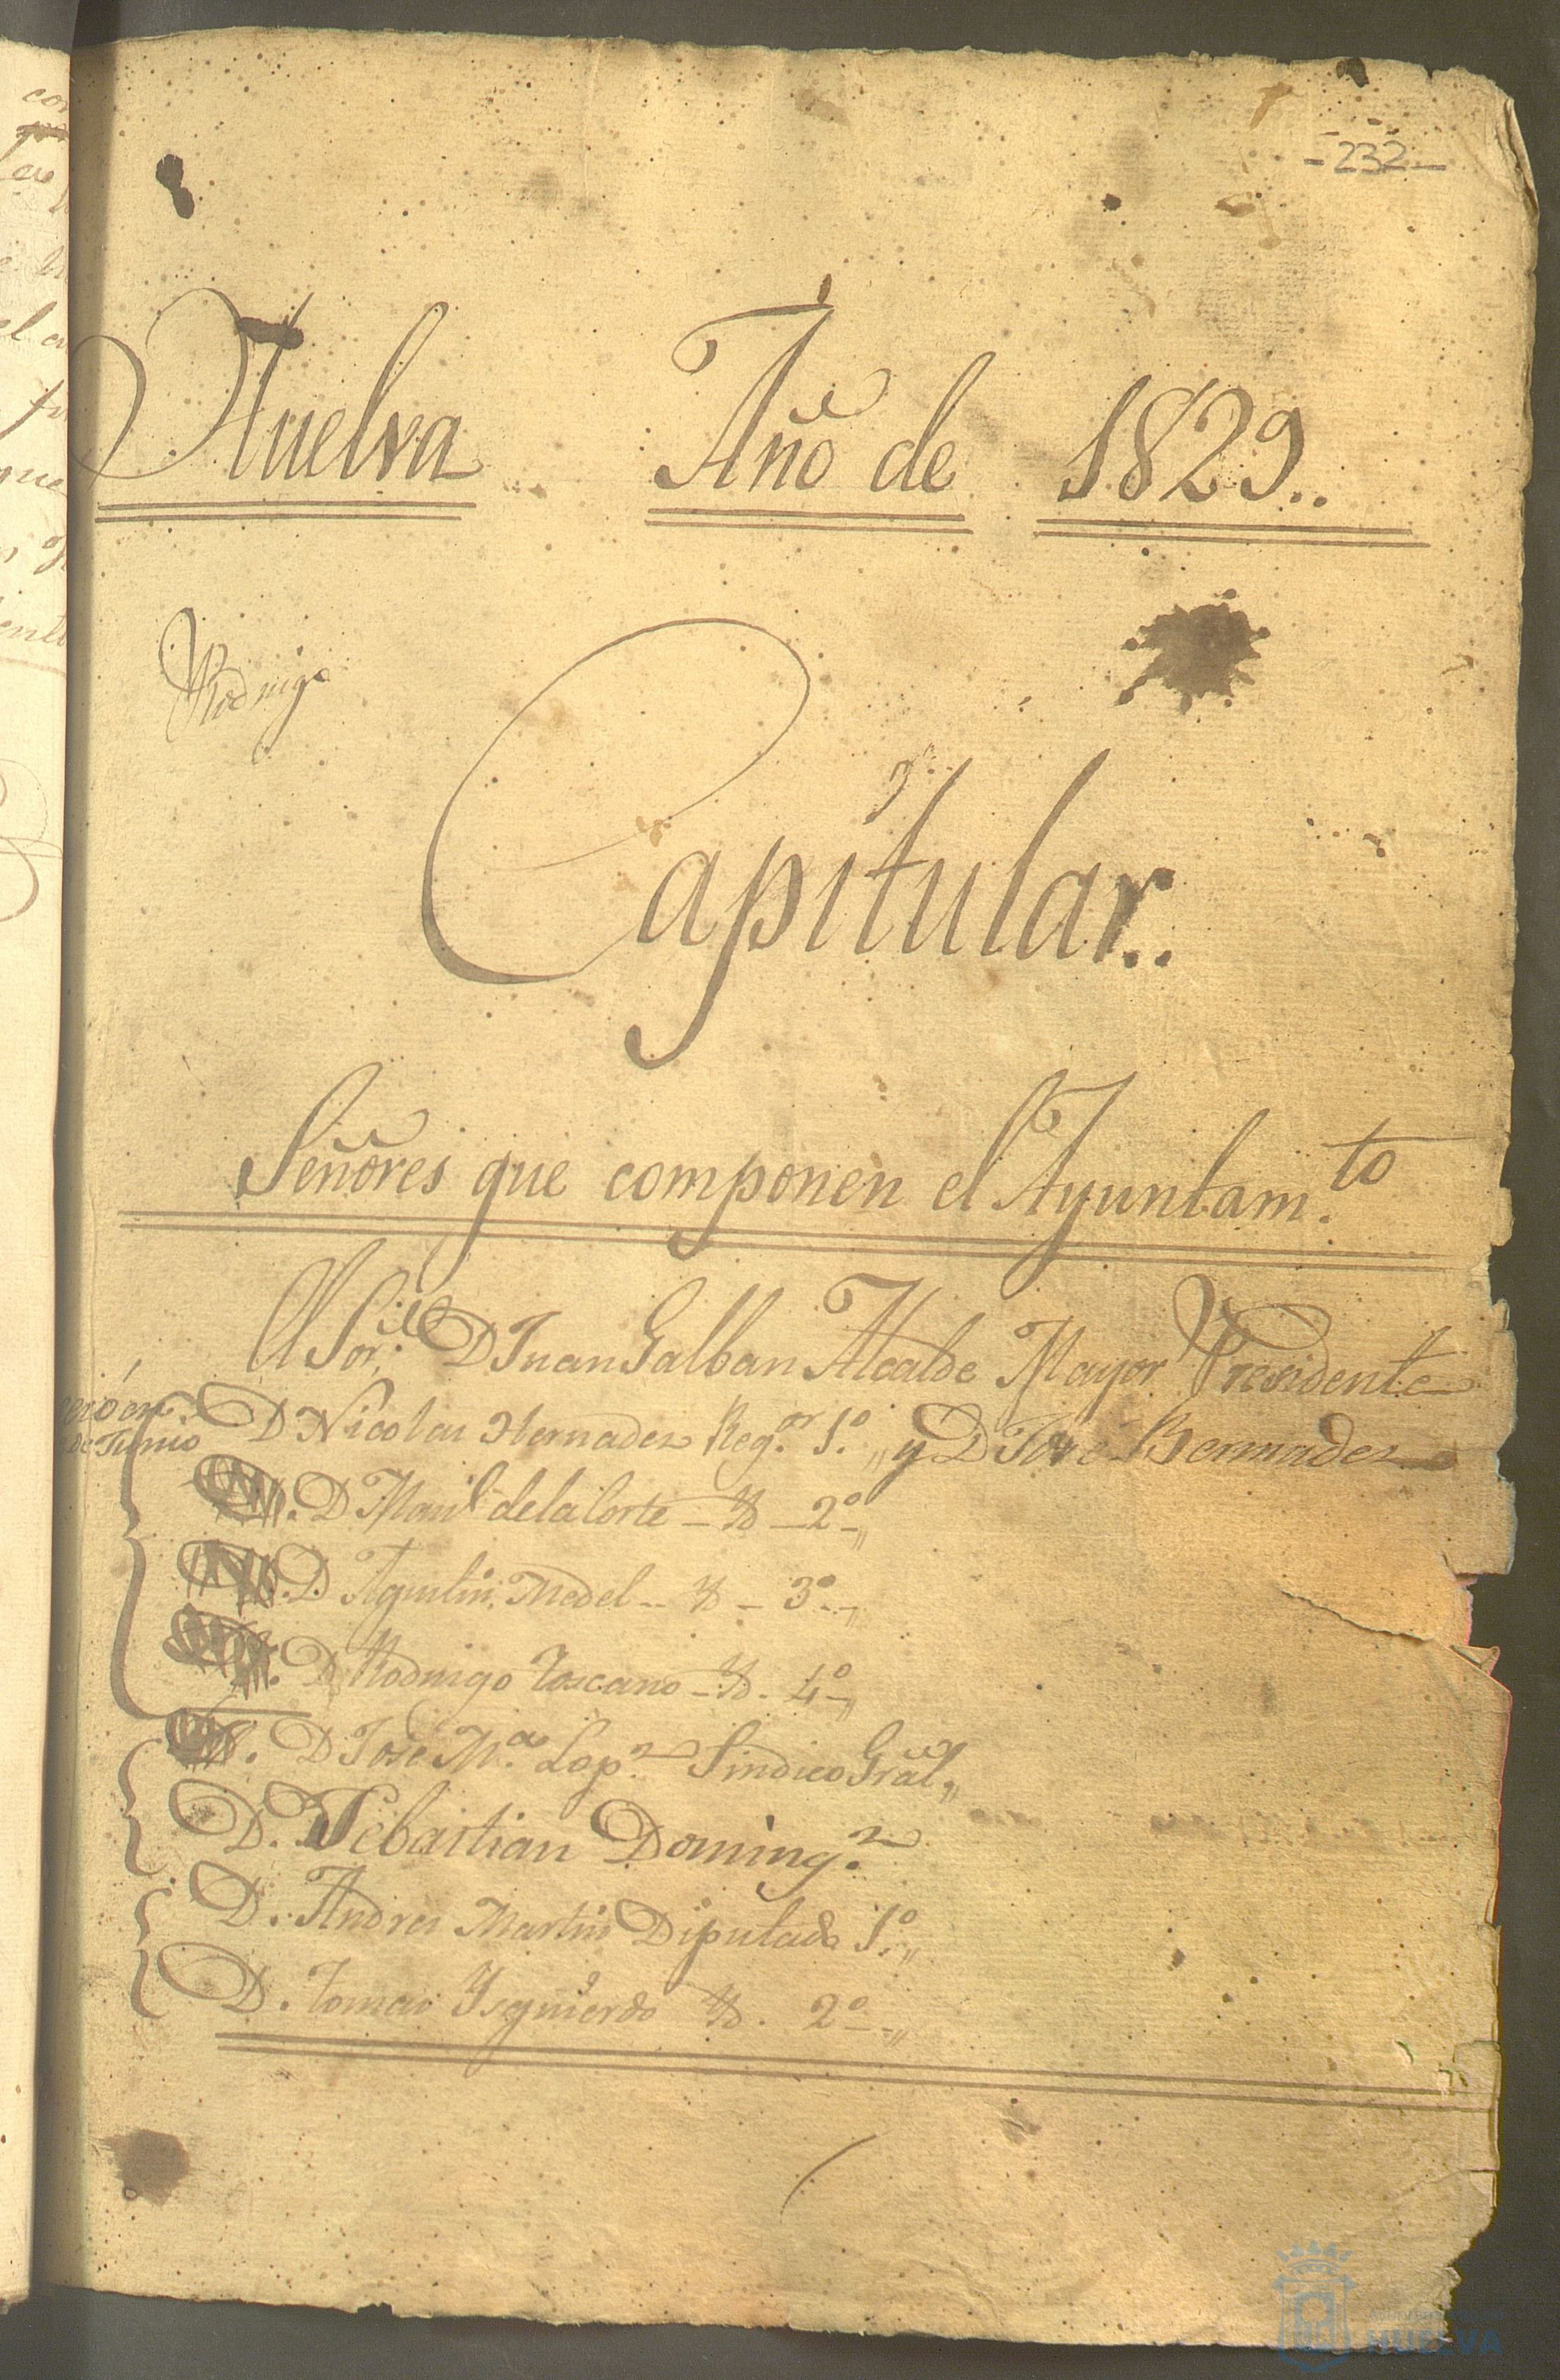 -232-
Huelva Año de 1829..
Rodrigo
Capitular..
Señores que componen el Ayuntam.to
El Sor. D Juan Galban Alcalde Mayor Presidente
de Junio
D Nicolas Hernadez Reg.or 1.º „ y D Jose Bermudez
D Man.l de la Corte - Yd - 2º -„
D. Agustin Medel - Yd - 3º -„
D Rodrigo Toscano - Yd. 4º -„
D Jose M.a Lop.z Sindico Gral„
D. Sebastian Doming.z
D. Andres Martin Diputado 1.º „
D. Tomas Ysquierdo Yd. 2º -„
HUELVA